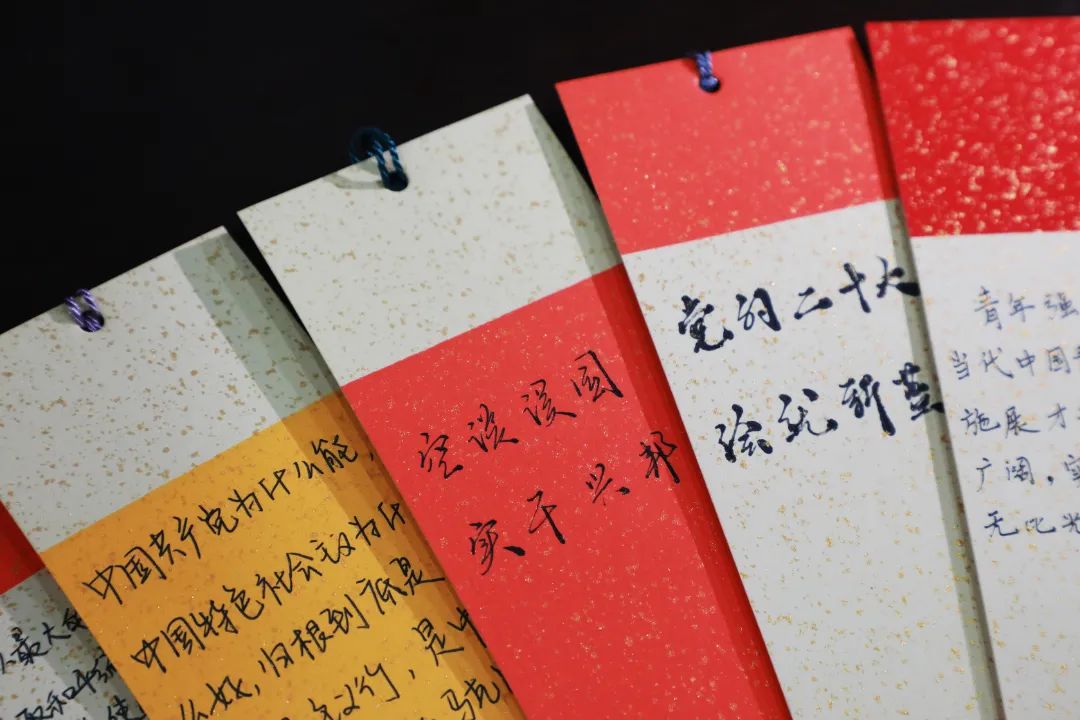 最大
和平
中国共产党为什么能，
中国特色社会主义为什
么好，归根到底是
义行，是中
马克
空谈误国
实干兴邦
党的二十大
绘就新蓝
青年强
当代中国
施展才
广阔，
无比光